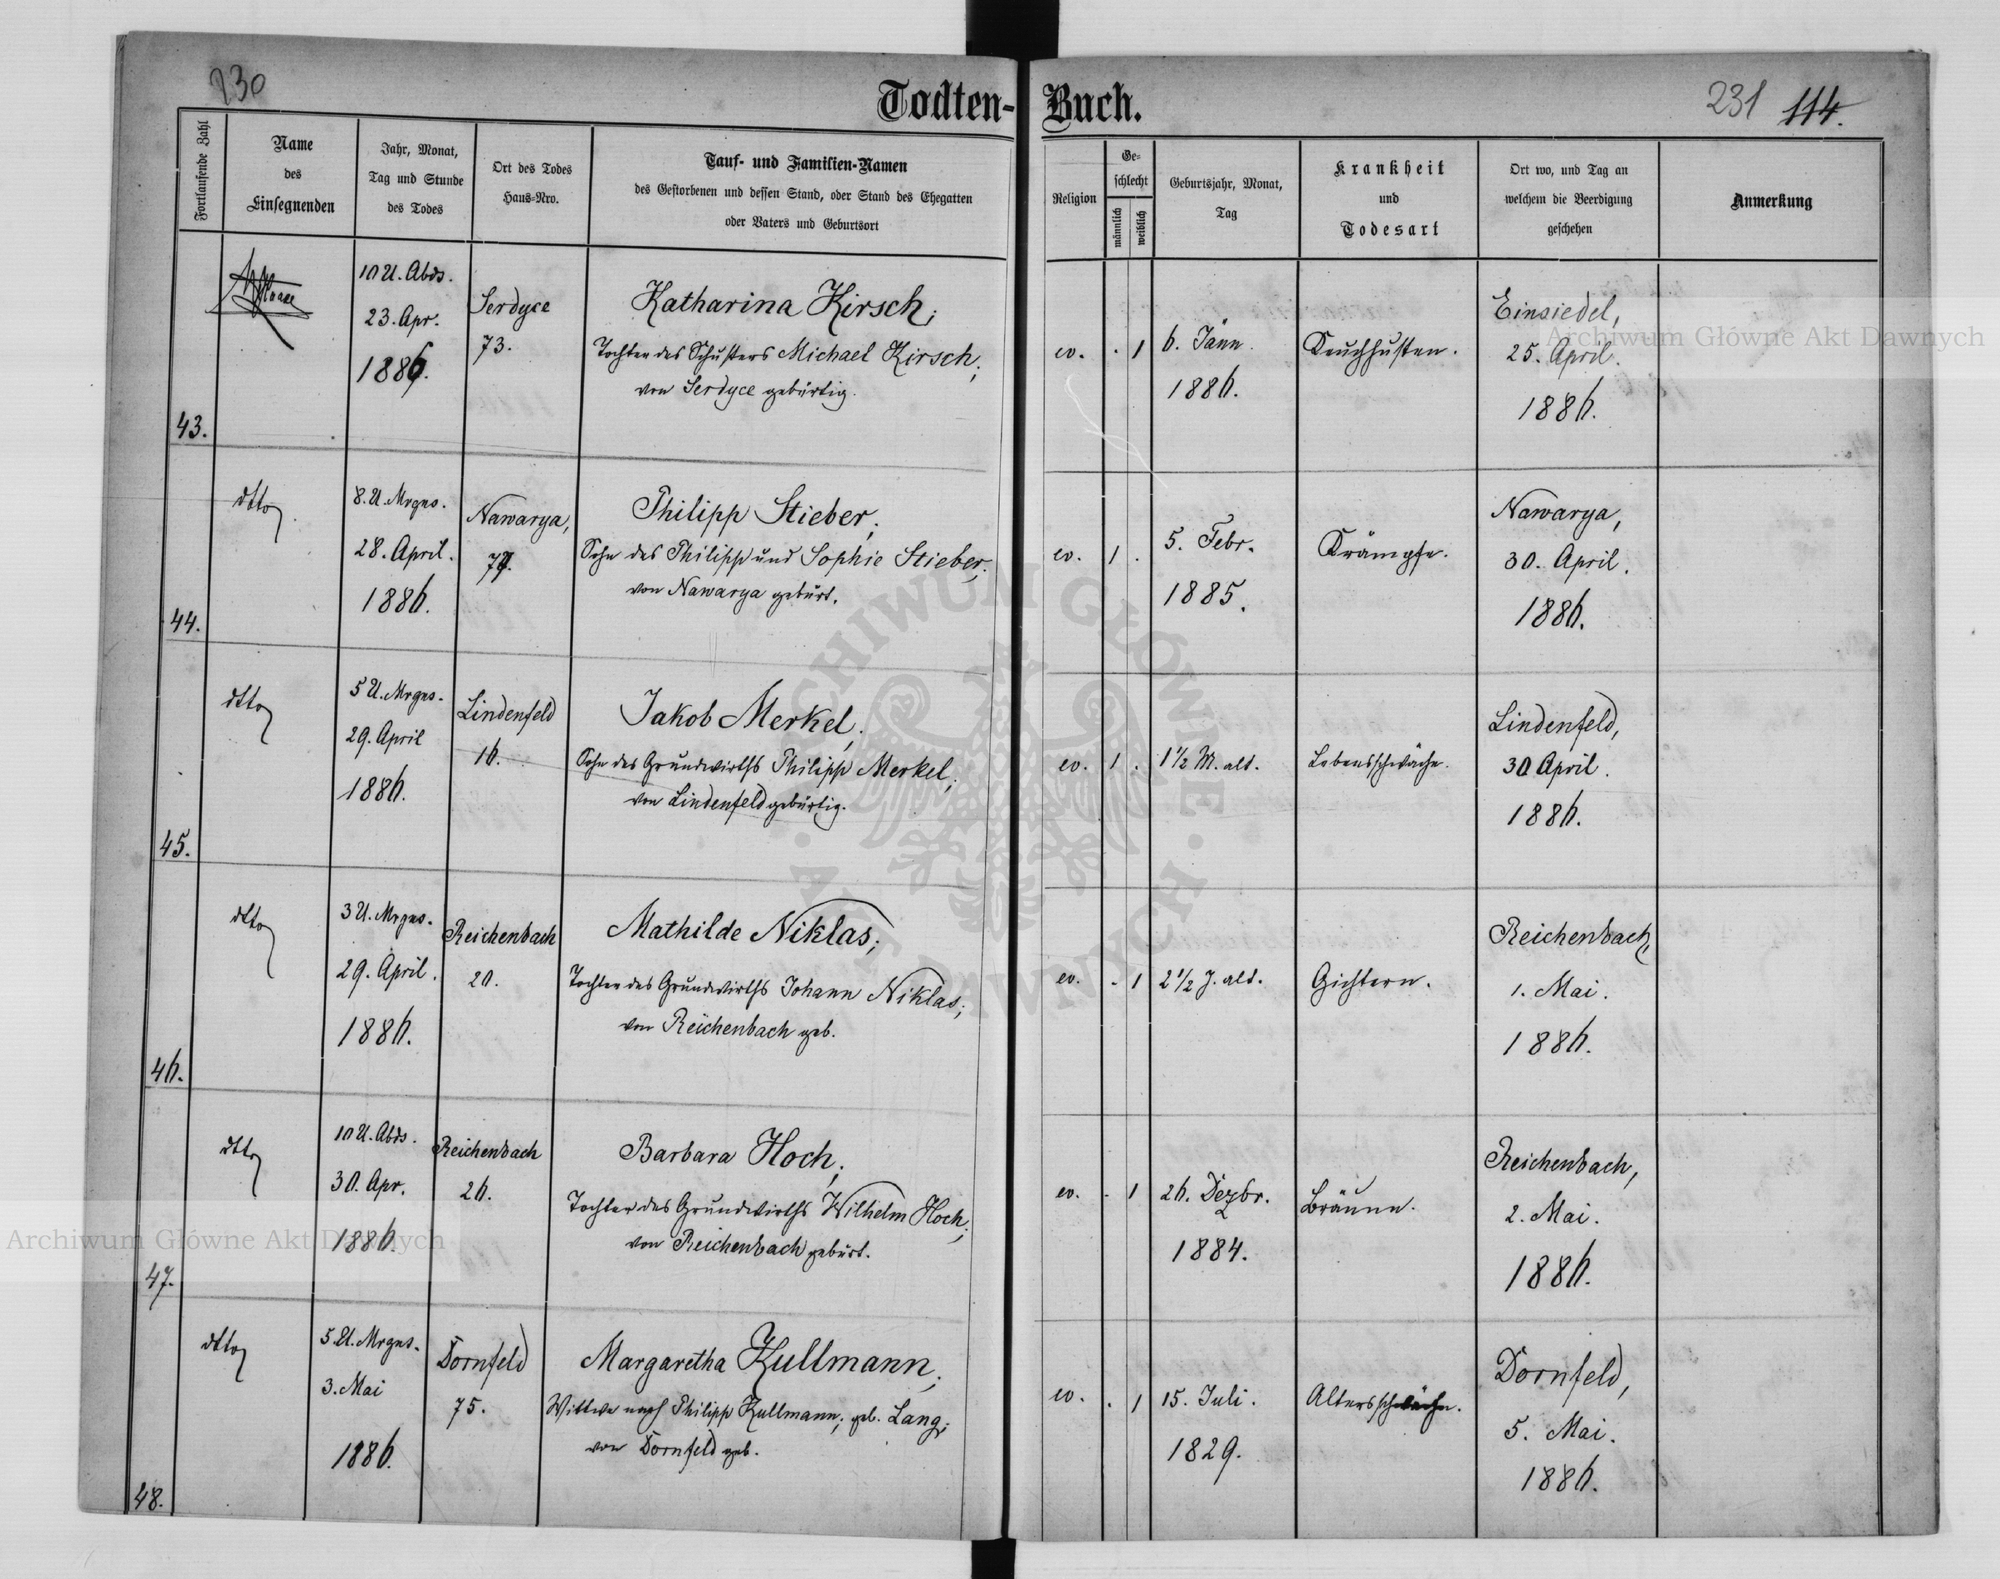 230
Todten-Buch.
231 114.
Fortlaufende Zahl
Name
des
Einsegnenden
Jahr, Monat,
Tag und Stunde
des Todes
Ort des Todes
Haus-Nro.
Tauf- und Familien-Namen
des Gestorbenen und dessen Stand, oder Stand des Ehegatten
oder Vaters und Geburtsort
Religion
Ge-
schlecht
männlich
weiblich
Geburtsjahr, Monat,
Tag
Krankheit
und
Todesart
Ort wo, und Tag an
welchem die Beerdigung
geschehen
Anmerkung
43.
10 U. Abds.
23. Apr.
1886.
Serdyce
73.
Katharina Kirsch;
Tochter des Schusters Michael Kirsch;
von Serdyce gebürtig.
ev. . 1
6. Jänn.
1886.
Keuchhusten.
Einsiedel,
25. April.
1886.
44.
dtto
8. U. Mrgns.
28. April.
1886.
Nawarya,
Philipp Stieber;
Sohn des Philipp und Sophie Stieber;
von Nawarya gebürt.
ev. 1 .
5. Febr.
1885.
Krämpfe.
Nawarya,
30. April.
1886.
45.
dtto
5 U. Mrgns.
29. April
1886.
Lindenfeld
16.
Jakob Merkel;
Sohn des Grundwirths Philipp Merkel;
von Lindenfeld gebürtig.
ev. 1 .
1 1/2 M. alt.
Lebensschwäche.
Lindenfeld,
30 April.
1886.
46.
dtto
3 U. Mrgns.
29. April.
1886.
Reichenbach
20.
Mathilde Niklas;
Tochter des Grundwirths Johann Niklas;
von Reichenbach geb.
ev. . 1
2 1/2 J. alt.
Gichtern.
Reichenbach,
1. Mai.
1886.
47.
dtto
10 U. Abds.
30. Apr.
1886.
Reichenbach
26.
Barbara Hoch;
Tochter des Grundwirths Wilhelm Hoch;
von Reichenbach gebürt.
ev. . 1
26. Dezbr.
1884.
Bräune.
Reichenbach,
2. Mai.
1886.
48.
dtto
5 U. Mrgns.
3. Mai
1886.
Dornfeld
75.
Margaretha Kullmann;
Wittwe nach Philipp Kullmann; geb. Lang;
von Dornfeld geb.
ev. . 1
15. Juli.
1829.
Altersschwäche.
Dornfeld,
5. Mai.
1886.
Archiwum Główne Akt Dawnych
Archiwum Główne Akt Dawnych
ARCHIWUM GŁÓWNE AKT DAWNYCH